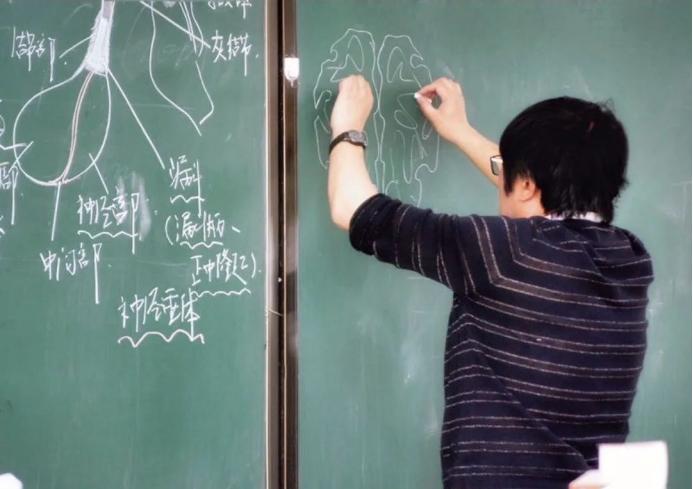 灰结节
漏斗
神经部
(漏斗柄、
中间部
正中隆起).
神经垂体